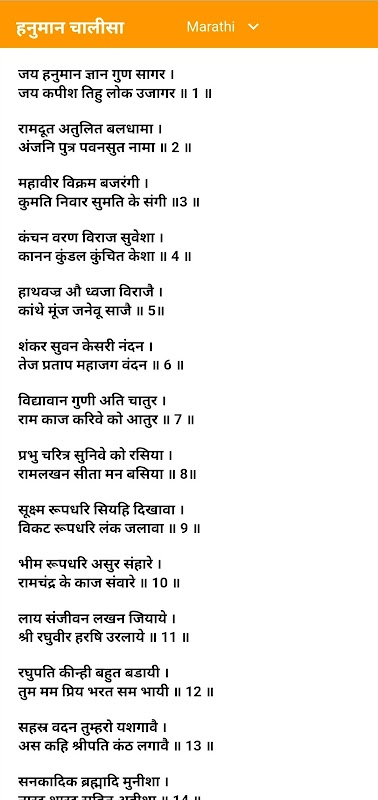 हनुमान चालीसा
Marathi
जय हनुमान ज्ञान गुण सागर ।
जय कपीश तिहु लोक उजागर ॥ 1 ॥
रामदूत अतुलित बलधामा ।
अंजनि पुत्र पवनसुत नामा ॥ 2 ॥
महावीर विक्रम बजरंगी ।
कुमति निवार सुमति के संगी ॥3 ॥
कंचन वरण विराज सुवेशा ।
कानन कुंडल कुंचित केशा ॥ 4 ॥
हाथवज्र औ ध्वजा विराजै ।
कांथे मूंज जनेवू साजै ॥ 5॥
शंकर सुवन केसरी नंदन ।
तेज प्रताप महाजग वंदन ॥ 6 ॥
विद्यावान गुणी अति चातुर ।
राम काज करिवे को आतुर ॥ 7 ॥
प्रभु चरित्र सुनिवे को रसिया ।
रामलखन सीता मन बसिया ॥ 8॥
सूक्ष्म रूपधरि सियहि दिखावा ।
विकट रूपधरि लंक जलावा ॥ 9 ॥
भीम रूपधरि असुर संहारे ।
रामचंद्र के काज संवारे ॥ 10 ॥
लाय संजीवन लखन जियाये ।
श्री रघुवीर हरषि उरलाये ॥ 11 ॥
रघुपति कीन्ही बहुत बडायी ।
तुम मम प्रिय भरत सम भायी ॥ 12 ॥
सहस्र वदन तुम्हरो यशगावै ।
अस कहि श्रीपति कंठ लगावै ॥ 13 ॥
सनकादिक ब्रह्मादि मुनीशा ।